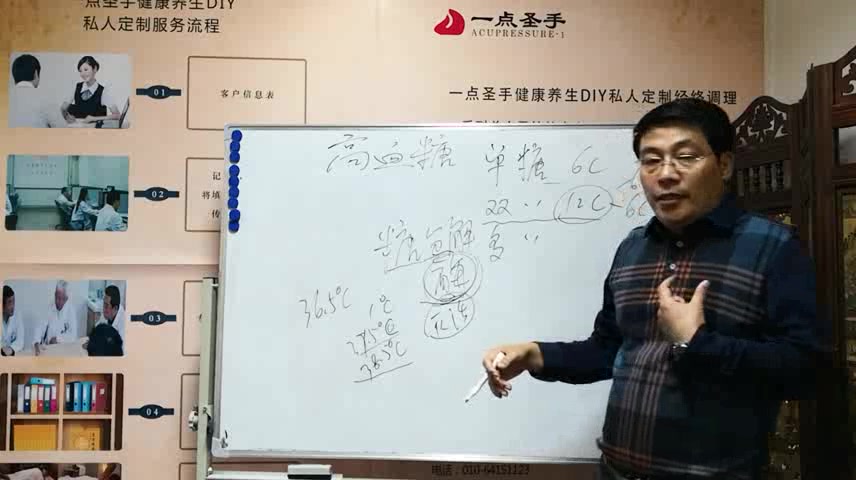 点圣手健康养生DIY
私人定制服务流程
01
客户信息表
02
记
将填
传
03
04
一点圣手
ACUPRESSURE-1
一点圣手健康养生DIY私人定制经络调理
高血糖 单糖 6C
双 〃 12C 6C
糖分解 多 〃
酶
活
36.5℃ 1℃
37.5℃
38.5℃
电话：010-64151123